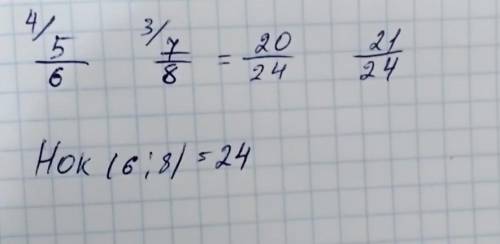 4/ 5/6 3/ 7/8 = 20/24 21/24
Нок (6; 8) = 24